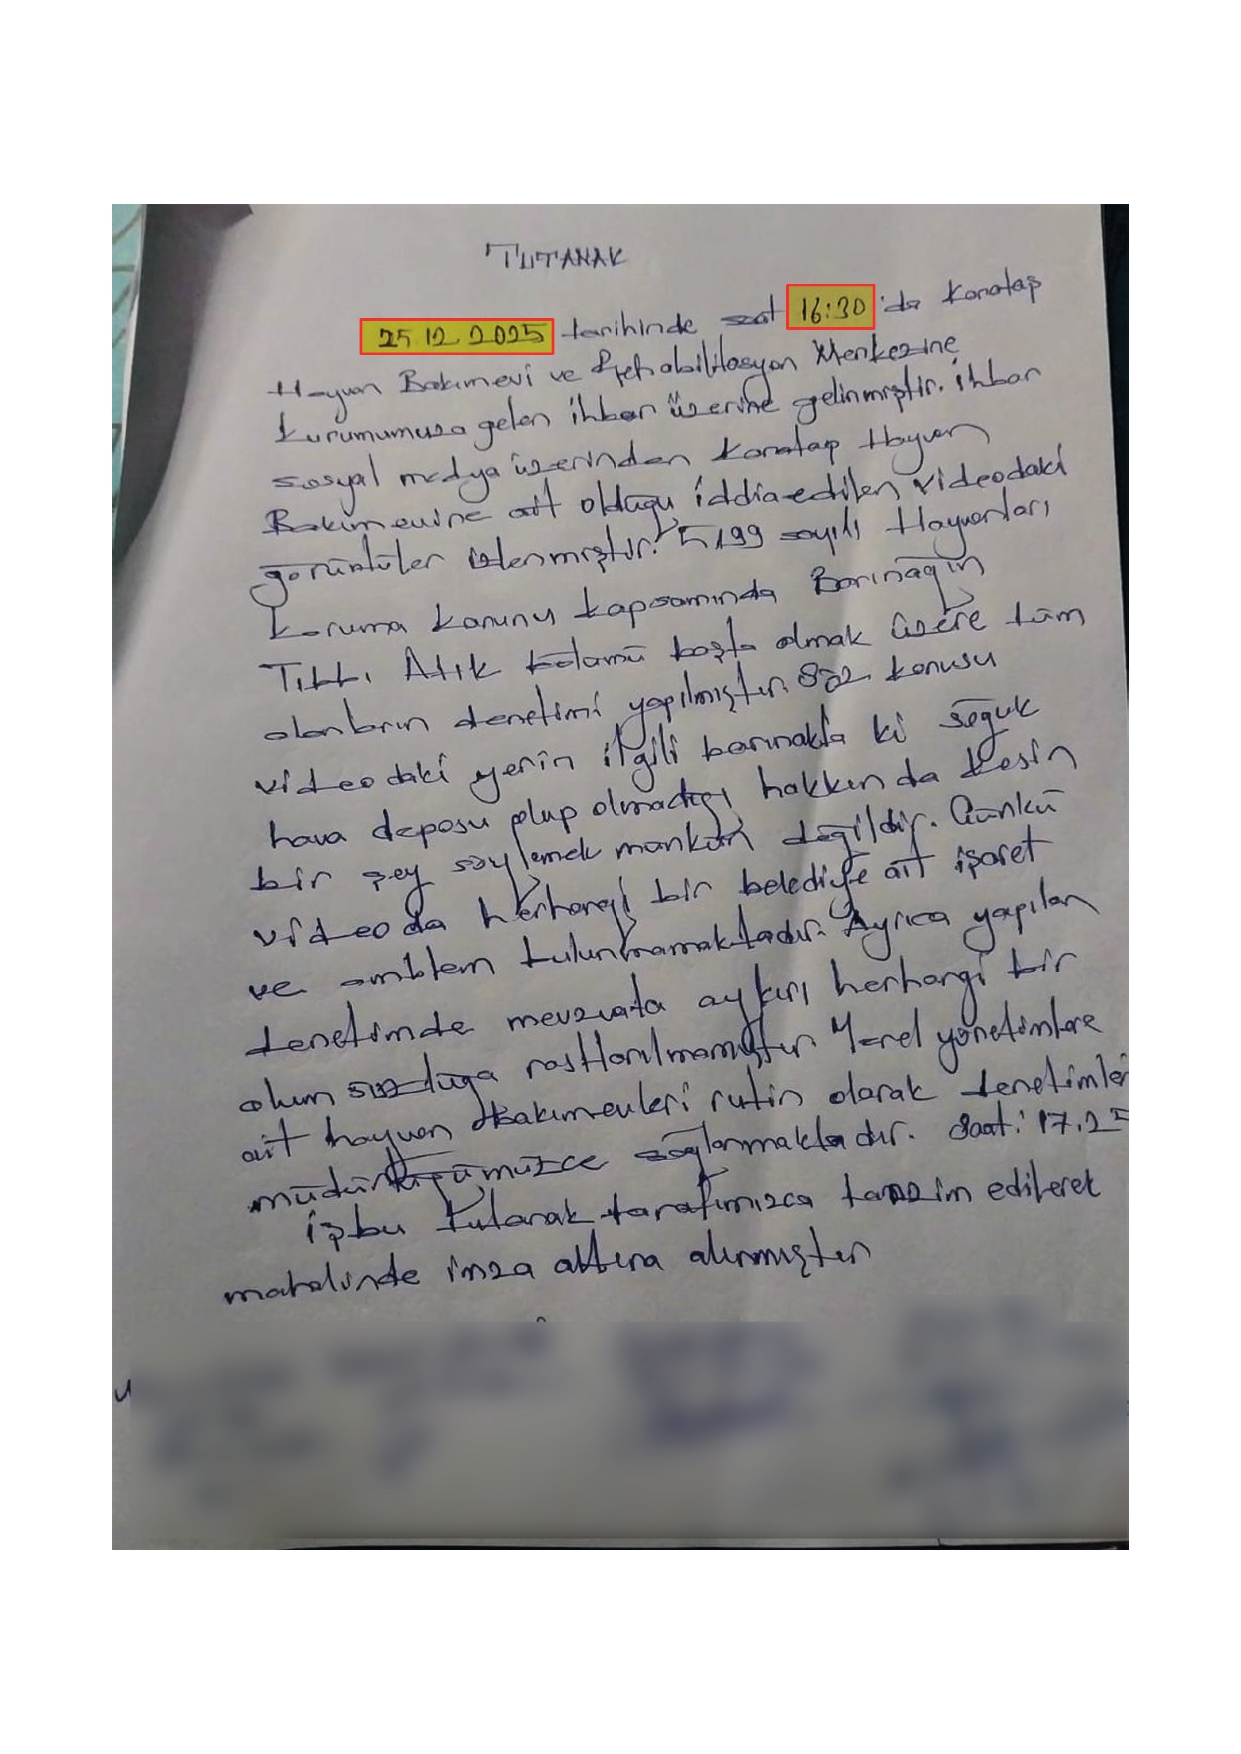 TUTANAK
25.12.2025 tarihinde saat 16:30'da Karataş
Hayvan Bakımevi ve Rehabilitasyon Merkezine
kurumumuza gelen ihbar üzerine gelinmiştir. İhbar
sosyal medya üzerinden Karataş Hayvan
Bakımevine ait olduğu iddia edilen videodaki
görüntüler izlenmiştir. 5199 sayılı Hayvanları
Koruma Kanunu kapsamında Barınağın
Tıbbi Atık bölümü başta olmak üzere tüm
alanların denetimi yapılmıştır. Söz konusu
videodaki yerin ilgili barınakta ki soğuk
hava deposu olup olmadığı hakkında kesin
bir şey söylemek mümkün değildir. Çünkü
videoda herhangi bir belediye ait işaret
ve amblem bulunmamaktadır. Ayrıca yapılan
denetimde mevzuata aykırı herhangi bir
olumsuzluğa rastlanılmamıştır. Yerel yönetimlere
ait hayvan bakımevleri rutin olarak denetimler
müdürlüğümüzce sağlanmaktadır. Saat: 17.25
işbu tutanak tarafımızca tanzim edilerek
mahalinde imza altına alınmıştır